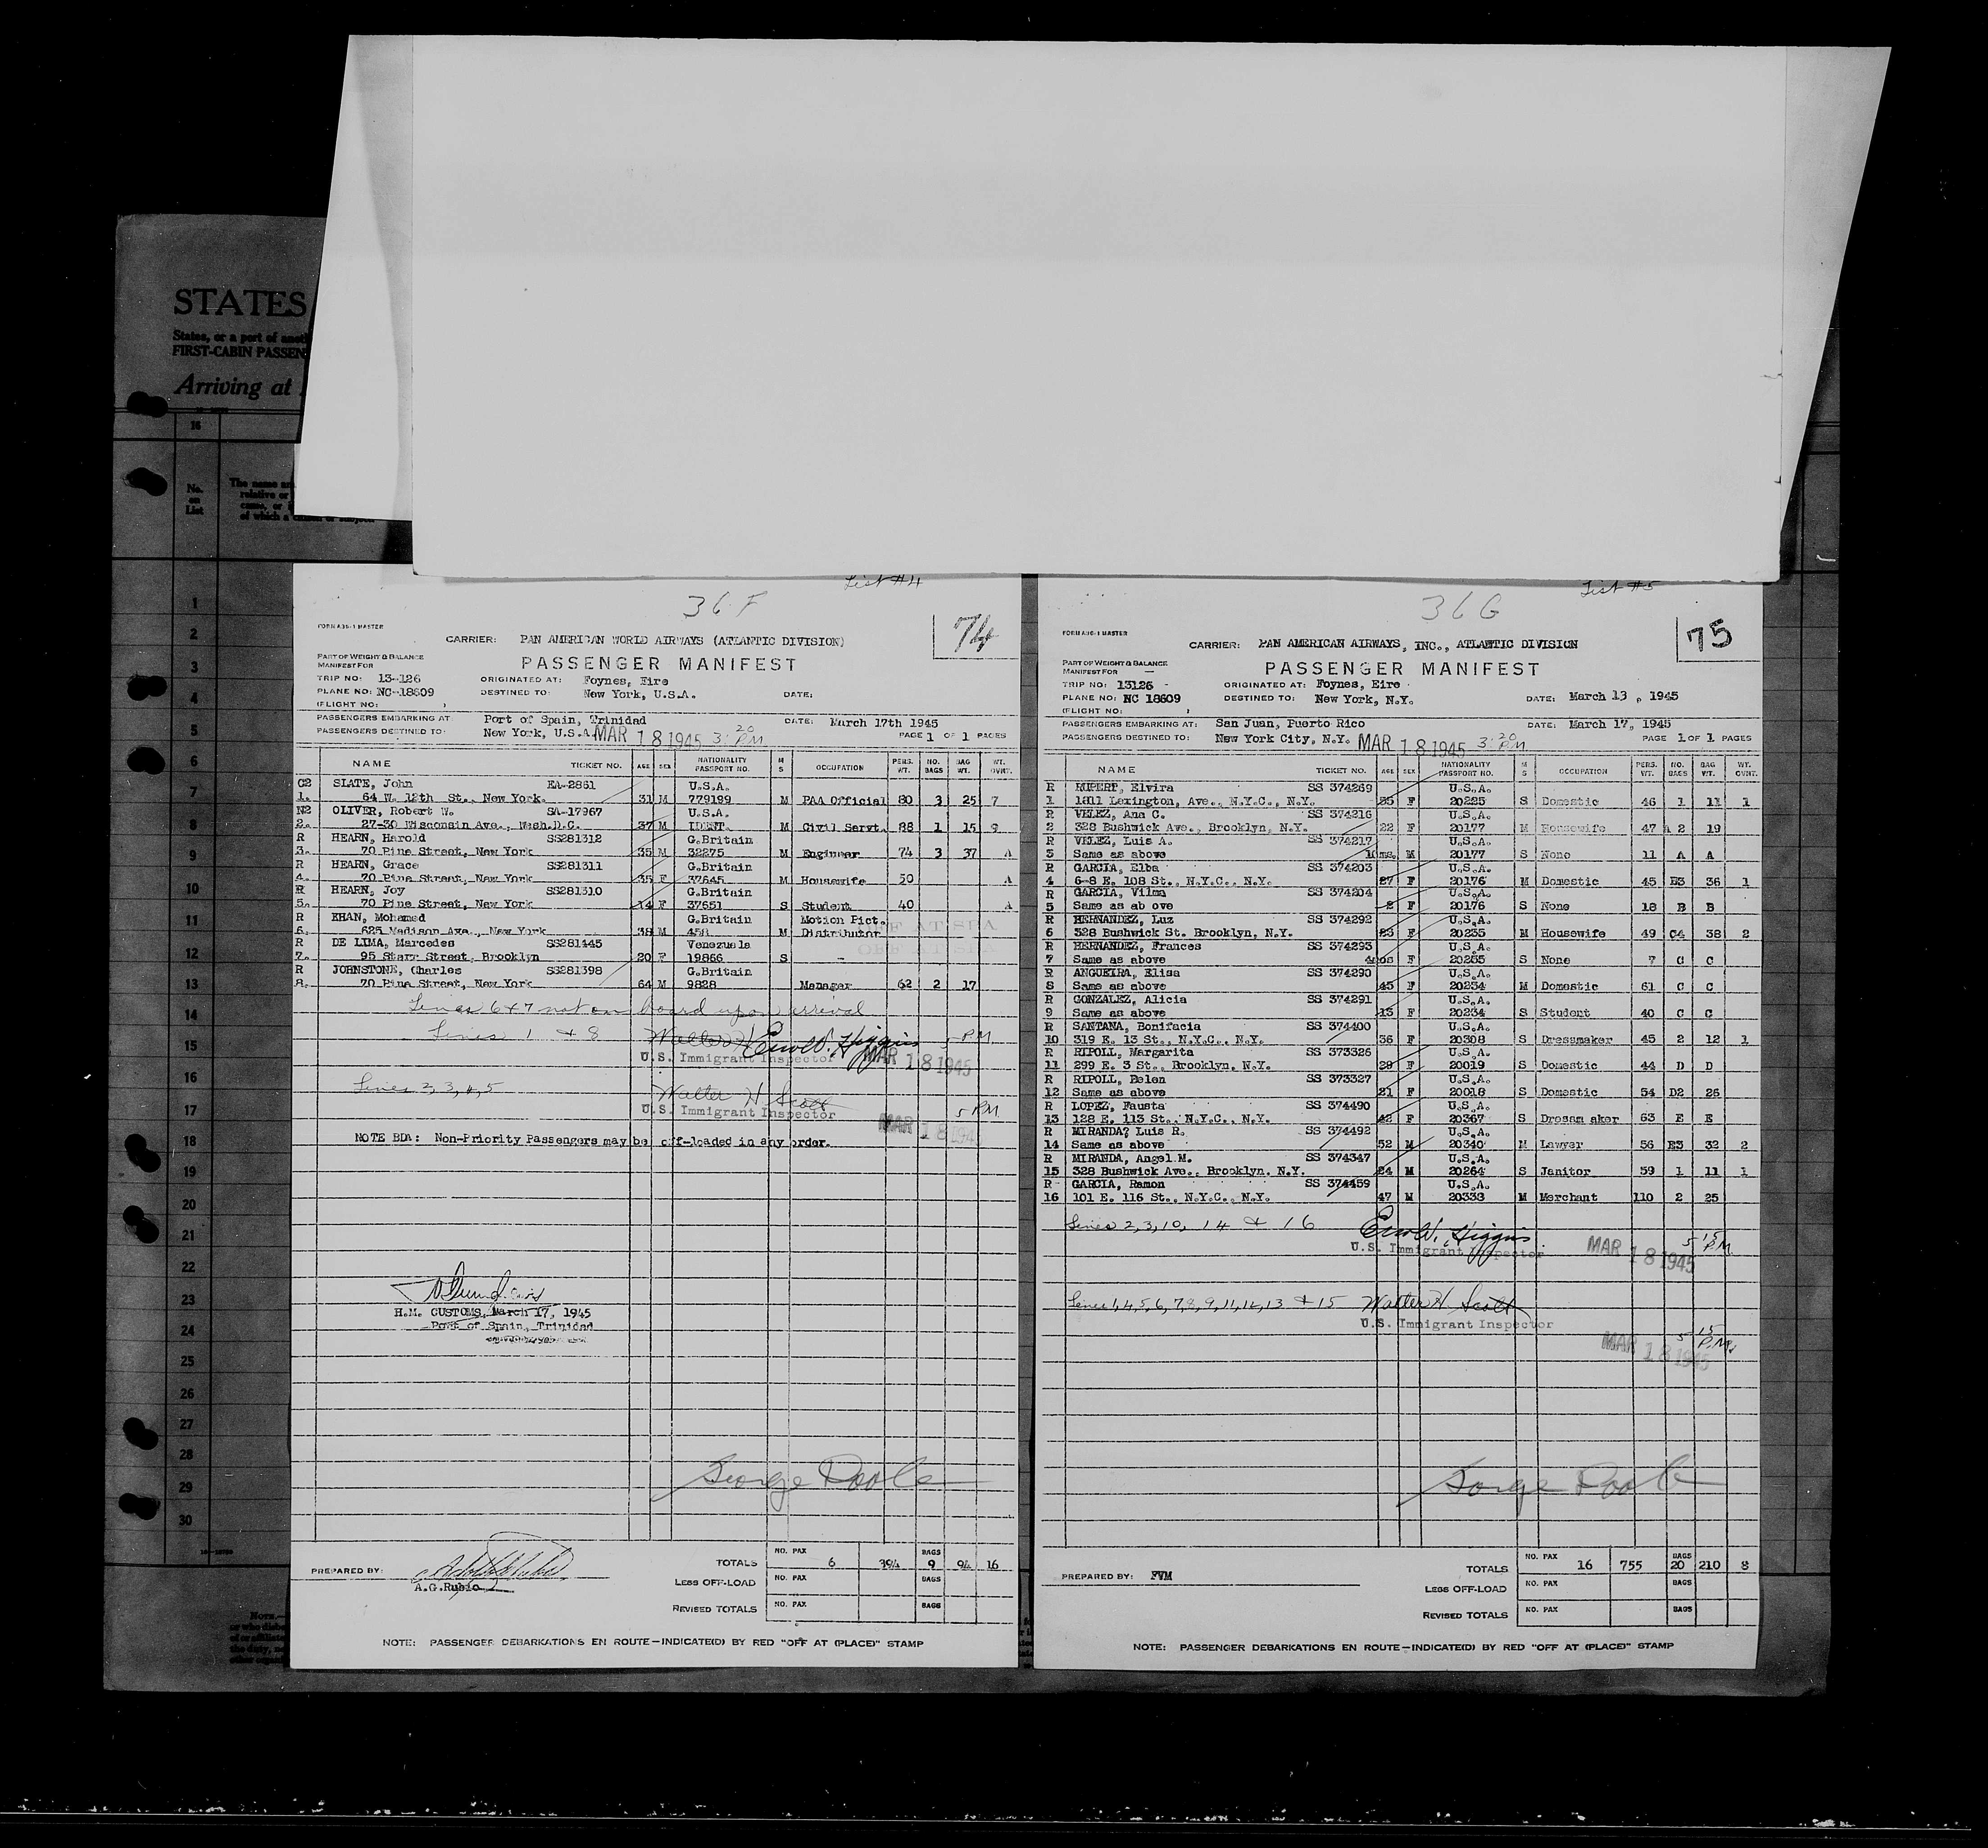 STATES
States, or a port of
FIRST-CABIN PASSEN
Arriving at
16
No.
on
List
The name an
relative or
of which a citizen or subject
1
2
3
4
5
6
7
8
9
10
11
12
13
14
15
16
17
18
19
20
21
22
23
24
25
26
27
28
29
30
List #4
36 F
74
FORM A36-1 MASTER
CARRIER: PAN AMERICAN WORLD AIRWAYS (ATLANTIC DIVISION)
PART OF WEIGHT & BALANCE
MANIFEST FOR
PASSENGER MANIFEST
TRIP NO: 13-126 ORIGINATED AT: Foynes, Eire
PLANE NO: NC-18609 DESTINED TO: New York, U.S.A. DATE:
(FLIGHT NO: )
PASSENGERS EMBARKING AT: Port of Spain, Trinidad DATE: March 17th 1945
PASSENGERS DESTINED TO: New York, U.S.A. MAR 18 1945 3:20 PM PAGE 1 OF 1 PAGES
NAME TICKET NO. AGE SEX NATIONALITY PASSPORT NO. M S OCCUPATION PERS. WT. NO. BAGS BAG WT. WT. OVNT.
C2 SLATE, John EA-2861 U.S.A.
1. 64 W. 12th St., New York. 31 M 779199 M PAA Official 80 3 25 7
N2 OLIVER, Robert W. SA-17967 U.S.A.
2. 27-30 Wisconsin Ave., Wash.D.C. 37 M IDENT. M Civil Servt. 88 1 15 9
R HEARN, Harold SS281312 G.Britain
3. 70 Pine Street, New York 35 M 32275 M Engineer 74 3 37 A
R HEARN, Grace SS281311 G.Britain
4. 70 Pine Street, New York 35 F 37645 M Housewife 50 A
R HEARN, Joy SS281310 G.Britain
5. 70 Pine Street, New York 14 F 37651 S Student 40 A
R KHAN, Mohamed G.Britain Motion Pict.
6. 625 Madison Ave., New York 38 M 458 M Distributor
R DE LIMA, Marcedes SS281445 Venezuela
7. 95 Starr Street, Brooklyn 20 F 19866 S -
R JOHNSTONE, Charles SS281398 G.Britain
8. 70 Pine Street, New York 64 M 9828 Manager 62 2 17
OFF AT SPA
OFF AT SPA
Lines 6+7 not on board upon arrival
Lines 1 & 8 Walter H Errol D. Higgins PM
U.S. Immigrant Inspector MAR 18 1945
Lines 2, 3, 4, 5 Walter H Scott
U.S. Immigrant Inspector 5 PM
MAR 18 1945
NOTE BDA: Non-Priority Passengers may be off-loaded in any order.
H.M. CUSTOMS, March 17, 1945
Port of Spain, Trinidad
George Poole
PREPARED BY:
A.G.Rubio
TOTALS NO. PAX 6 394 BAGS 9 94 16
LESS OFF-LOAD NO. PAX BAGS
REVISED TOTALS NO. PAX BAGS
NOTE: PASSENGER DEBARKATIONS EN ROUTE—INDICATE(D) BY RED "OFF AT (PLACE)" STAMP
List #5
36 G
75
FORM A36-1 MASTER
CARRIER: PAN AMERICAN AIRWAYS, INC., ATLANTIC DIVISION
PART OF WEIGHT & BALANCE
MANIFEST FOR
PASSENGER MANIFEST
TRIP NO: 13126 - ORIGINATED AT: Foynes, Eire
PLANE NO: NC 18609 DESTINED TO: New York, N.Y. DATE: March 13, 1945
(FLIGHT NO: )
PASSENGERS EMBARKING AT: San Juan, Puerto Rico DATE: March 17, 1945
PASSENGERS DESTINED TO: New York City, N.Y. MAR 18 1945 3:20 PM PAGE 1 OF 1 PAGES
NAME TICKET NO. AGE SEX NATIONALITY PASSPORT NO. M S OCCUPATION PERS. WT. NO. BAGS BAG WT. WT. OVNT.
R RUPERT, Elvira SS 374269 U.S.A.
1 1811 Lexington, Ave., N.Y.C., N.Y. 35 F 20225 S Domestic 46 1 11 1
R VELEZ, Ana C. SS 374216 U.S.A.
2 328 Bushwick Ave., Brooklyn, N.Y. 22 F 20177 M Housewife 47 A 2 19
R VELEZ, Luis A. SS 374217 U.S.A.
3 Same as above 10ms. M 20177 S None 11 A A
R GARCIA, Elba SS 374203 U.S.A.
4 6-8 E. 108 St., N.Y.C., N.Y. 27 F 20176 M Domestic 45 B3 36 1
R GARCIA, Vilma SS 374204 U.S.A.
5 Same as ab ove 2 F 20176 S None 18 B B
R HERNANDEZ, Luz SS 374292 U.S.A.
6 328 Bushwick St. Brooklyn, N.Y. 23 F 20235 M Housewife 49 C4 38 2
R HERNANDEZ, Frances SS 374293 U.S.A.
7 Same as above 4mos F 20255 S None 7 C C
R ANGUEIRA, Elisa SS 374290 U.S.A.
8 Same as above 45 F 20234 M Domestic 61 C C
R GONZALEZ, Alicia SS 374291 U.S.A.
9 Same as above 13 F 20234 S Student 40 C C
R SANTANA, Bonifacia SS 374400 U.S.A.
10 319 E. 13 St., N.Y.C., N.Y. 36 F 20308 S Dressmaker 45 2 12 1
R RIPOLL, Margarita SS 373326 U.S.A.
11 299 E. 3 St., Brooklyn, N.Y. 29 F 20019 S Domestic 44 D D
R RIPOLL, Belen SS 373327 U.S.A.
12 Same as above 21 F 20018 S Domestic 54 D2 26
R LOPEZ, Fausta SS 374490 U.S.A.
13 128 E. 113 St., N.Y.C., N.Y. 42 F 20367 S Dressm aker 63 E E
R MIRANDA? Luis R. SS 374492 U.S.A.
14 Same as above 52 M 20340 M Lawyer 56 E3 32 2
R MIRANDA, Angel M. SS 374347 U.S.A.
15 328 Bushwick Ave., Brooklyn, N.Y. 24 M 20264 S Janitor 59 1 11 1
R GARCIA, Ramon SS 374459 U.S.A.
16 101 E. 116 St., N.Y.C., N.Y. 47 M 20333 M Merchant 110 2 25
Lines 2, 3, 10, 14 & 16 Errol D. Higgins
U.S. Immigrant Inspector MAR 18 1945 5 15 PM
Lines 1, 4, 5, 6, 7, 8, 9, 11, 12, 13 & 15 Walter H. Scott
U.S. Immigrant Inspector
MAR 18 1945 5 15 P.M.
George Poole
PREPARED BY: FVM
TOTALS NO. PAX 16 755 BAGS 20 210 8
LESS OFF-LOAD NO. PAX BAGS
REVISED TOTALS NO. PAX BAGS
NOTE: PASSENGER DEBARKATIONS EN ROUTE—INDICATE(D) BY RED "OFF AT (PLACE)" STAMP